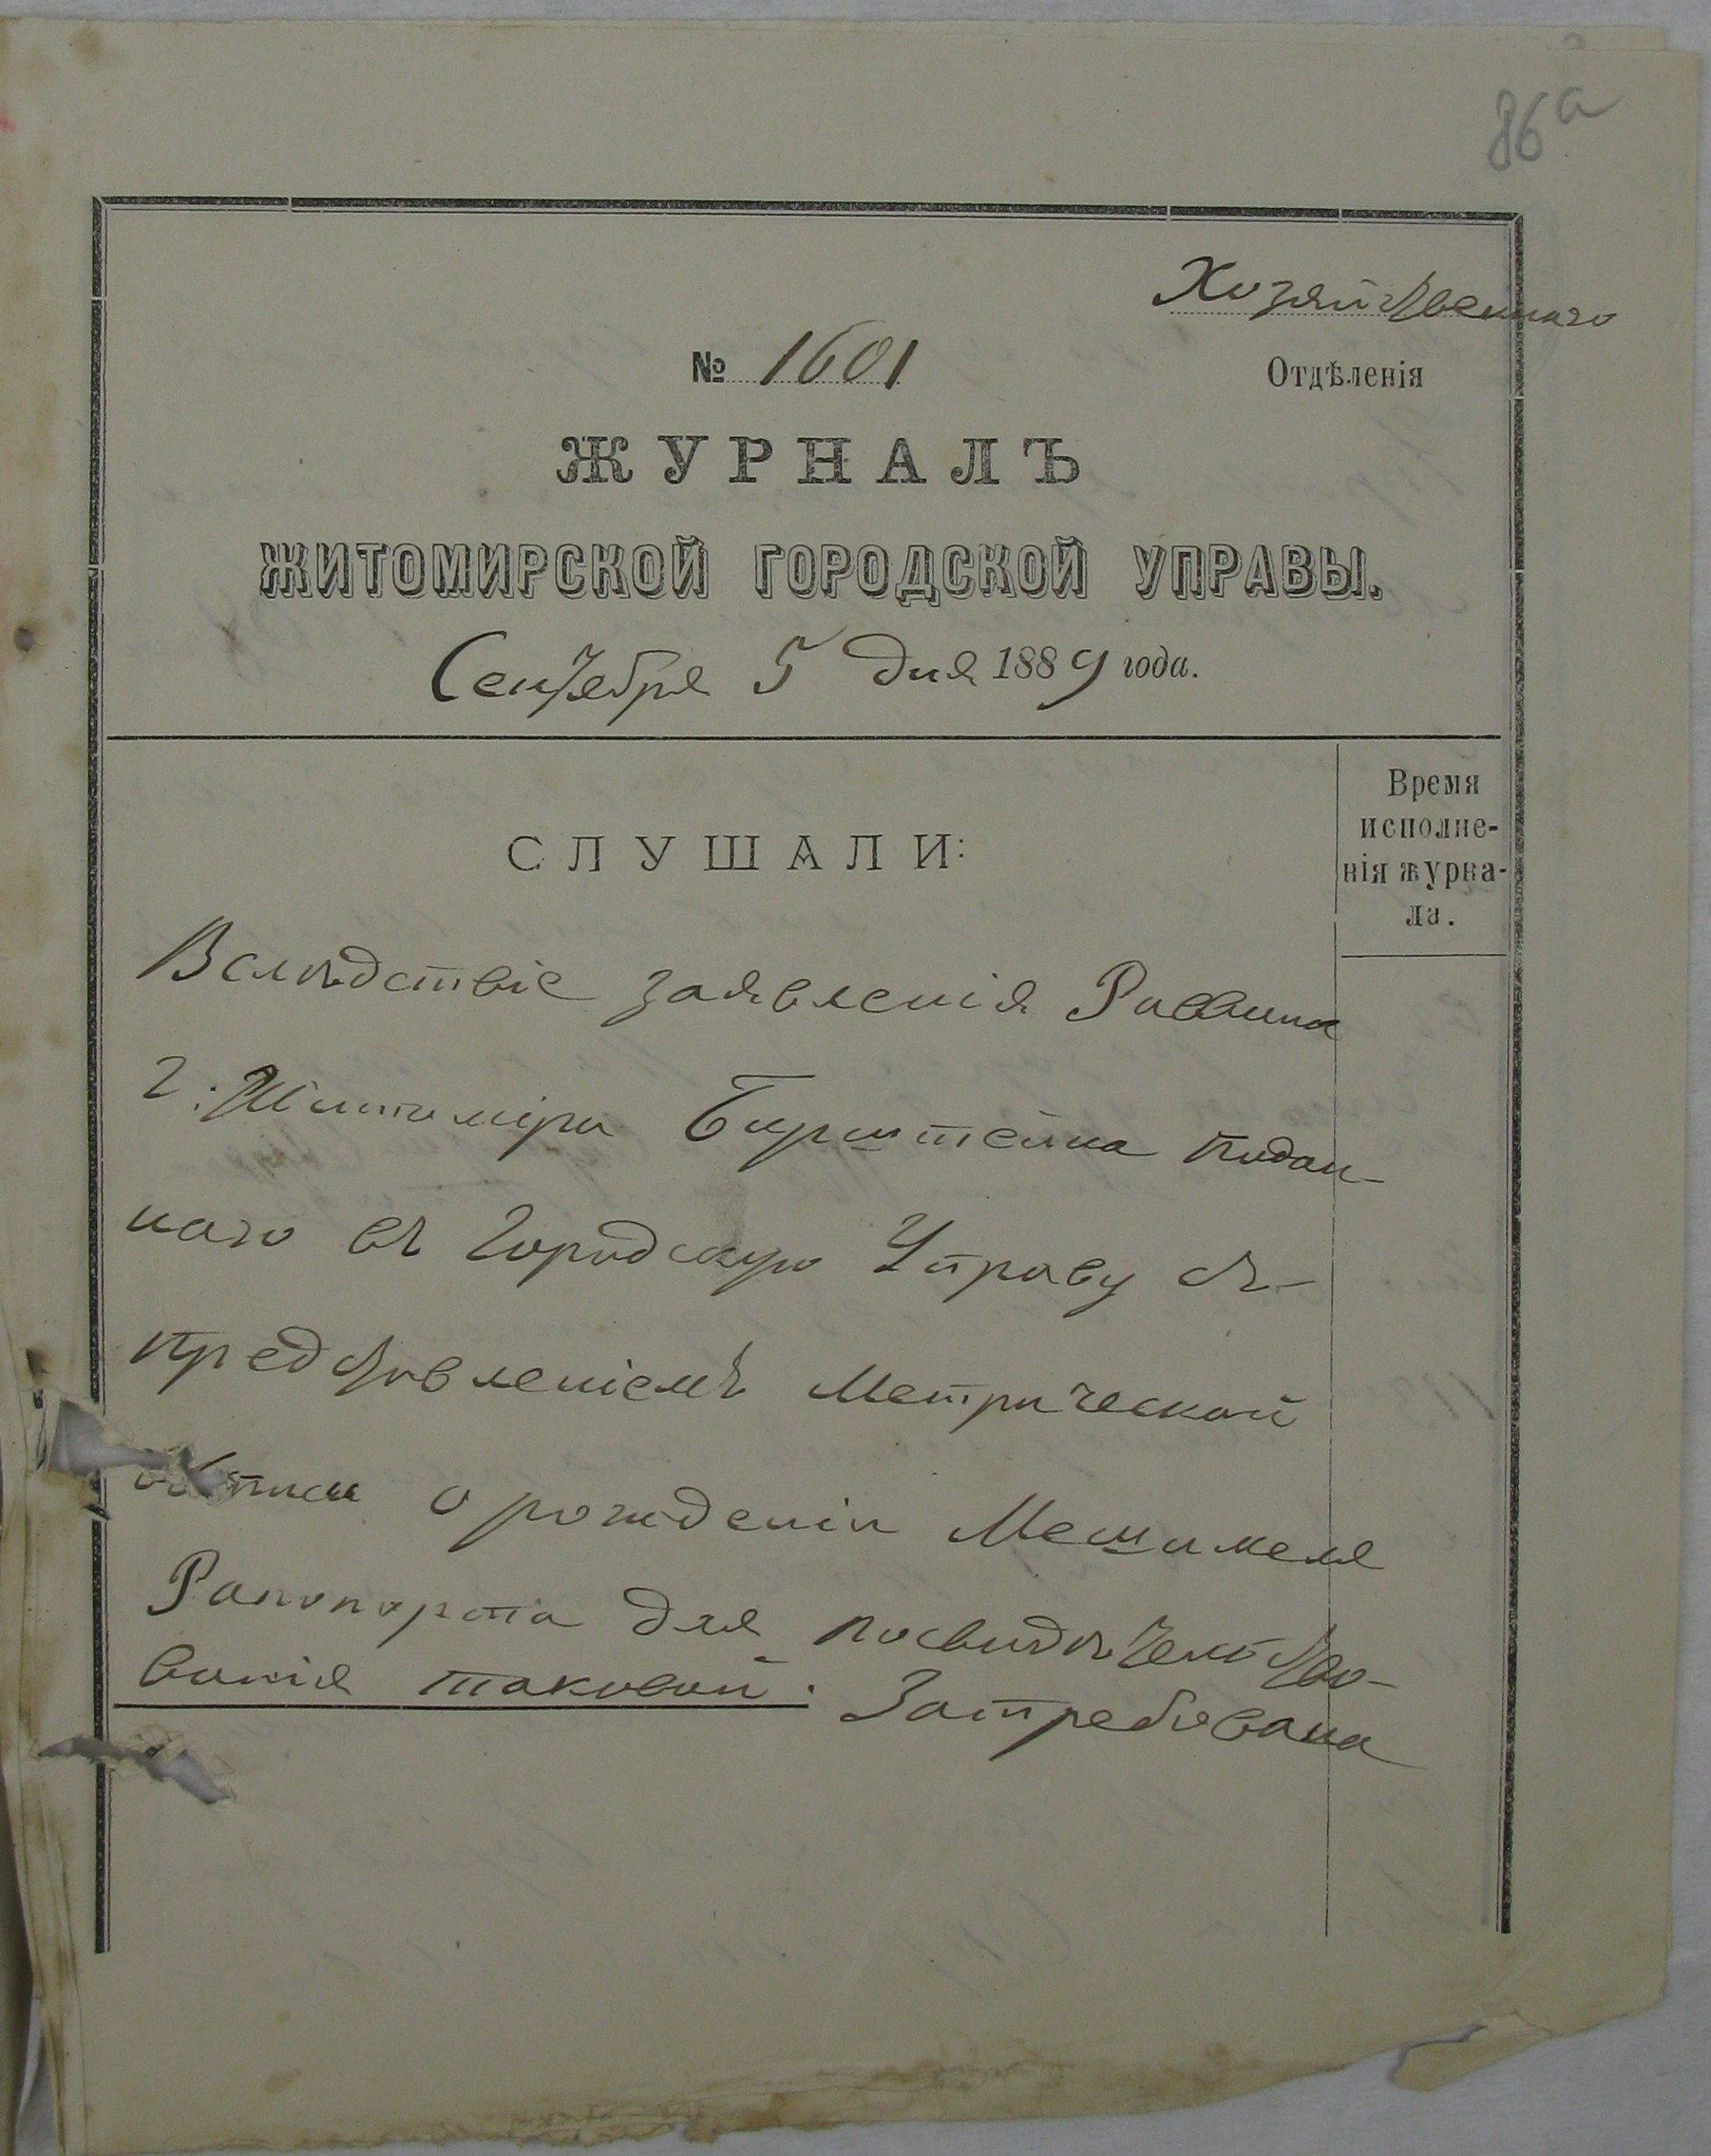 86а
Хозяйственнаго
№ 1601
Отдѣленія
ЖУРНАЛЪ
ЖИТОМИРСКОЙ ГОРОДСКОЙ УПРАВЫ.
Сентября 5 дня 1889 года.
Время
исполне-
нія журна-
ла.
СЛУШАЛИ:
Вслѣдствіе заявленія Раввина
г. Житоміра Бурштейна подан-
наго въ Городскую Управу съ
представленіемъ Метрической
о рожденіи Мешимеля
Рапопорта для посвидѣтельство-
ванія таковой. Затребована